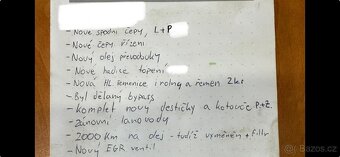 - Nové spodní čepy, L+P
- Nové čepy řízení
- Nový olej převodovky
- Nové hadice topení
- Nová HL. řemenice i rolny a řemen 2ks
- Byl dělaný bypass
- Komplet nový destičky a kotouče P+Z.
- Zánovní lanovody
- 2000 Km na olej - tudíž vyměněn + filtr
- Nový EGR ventil
Bazoš.cz